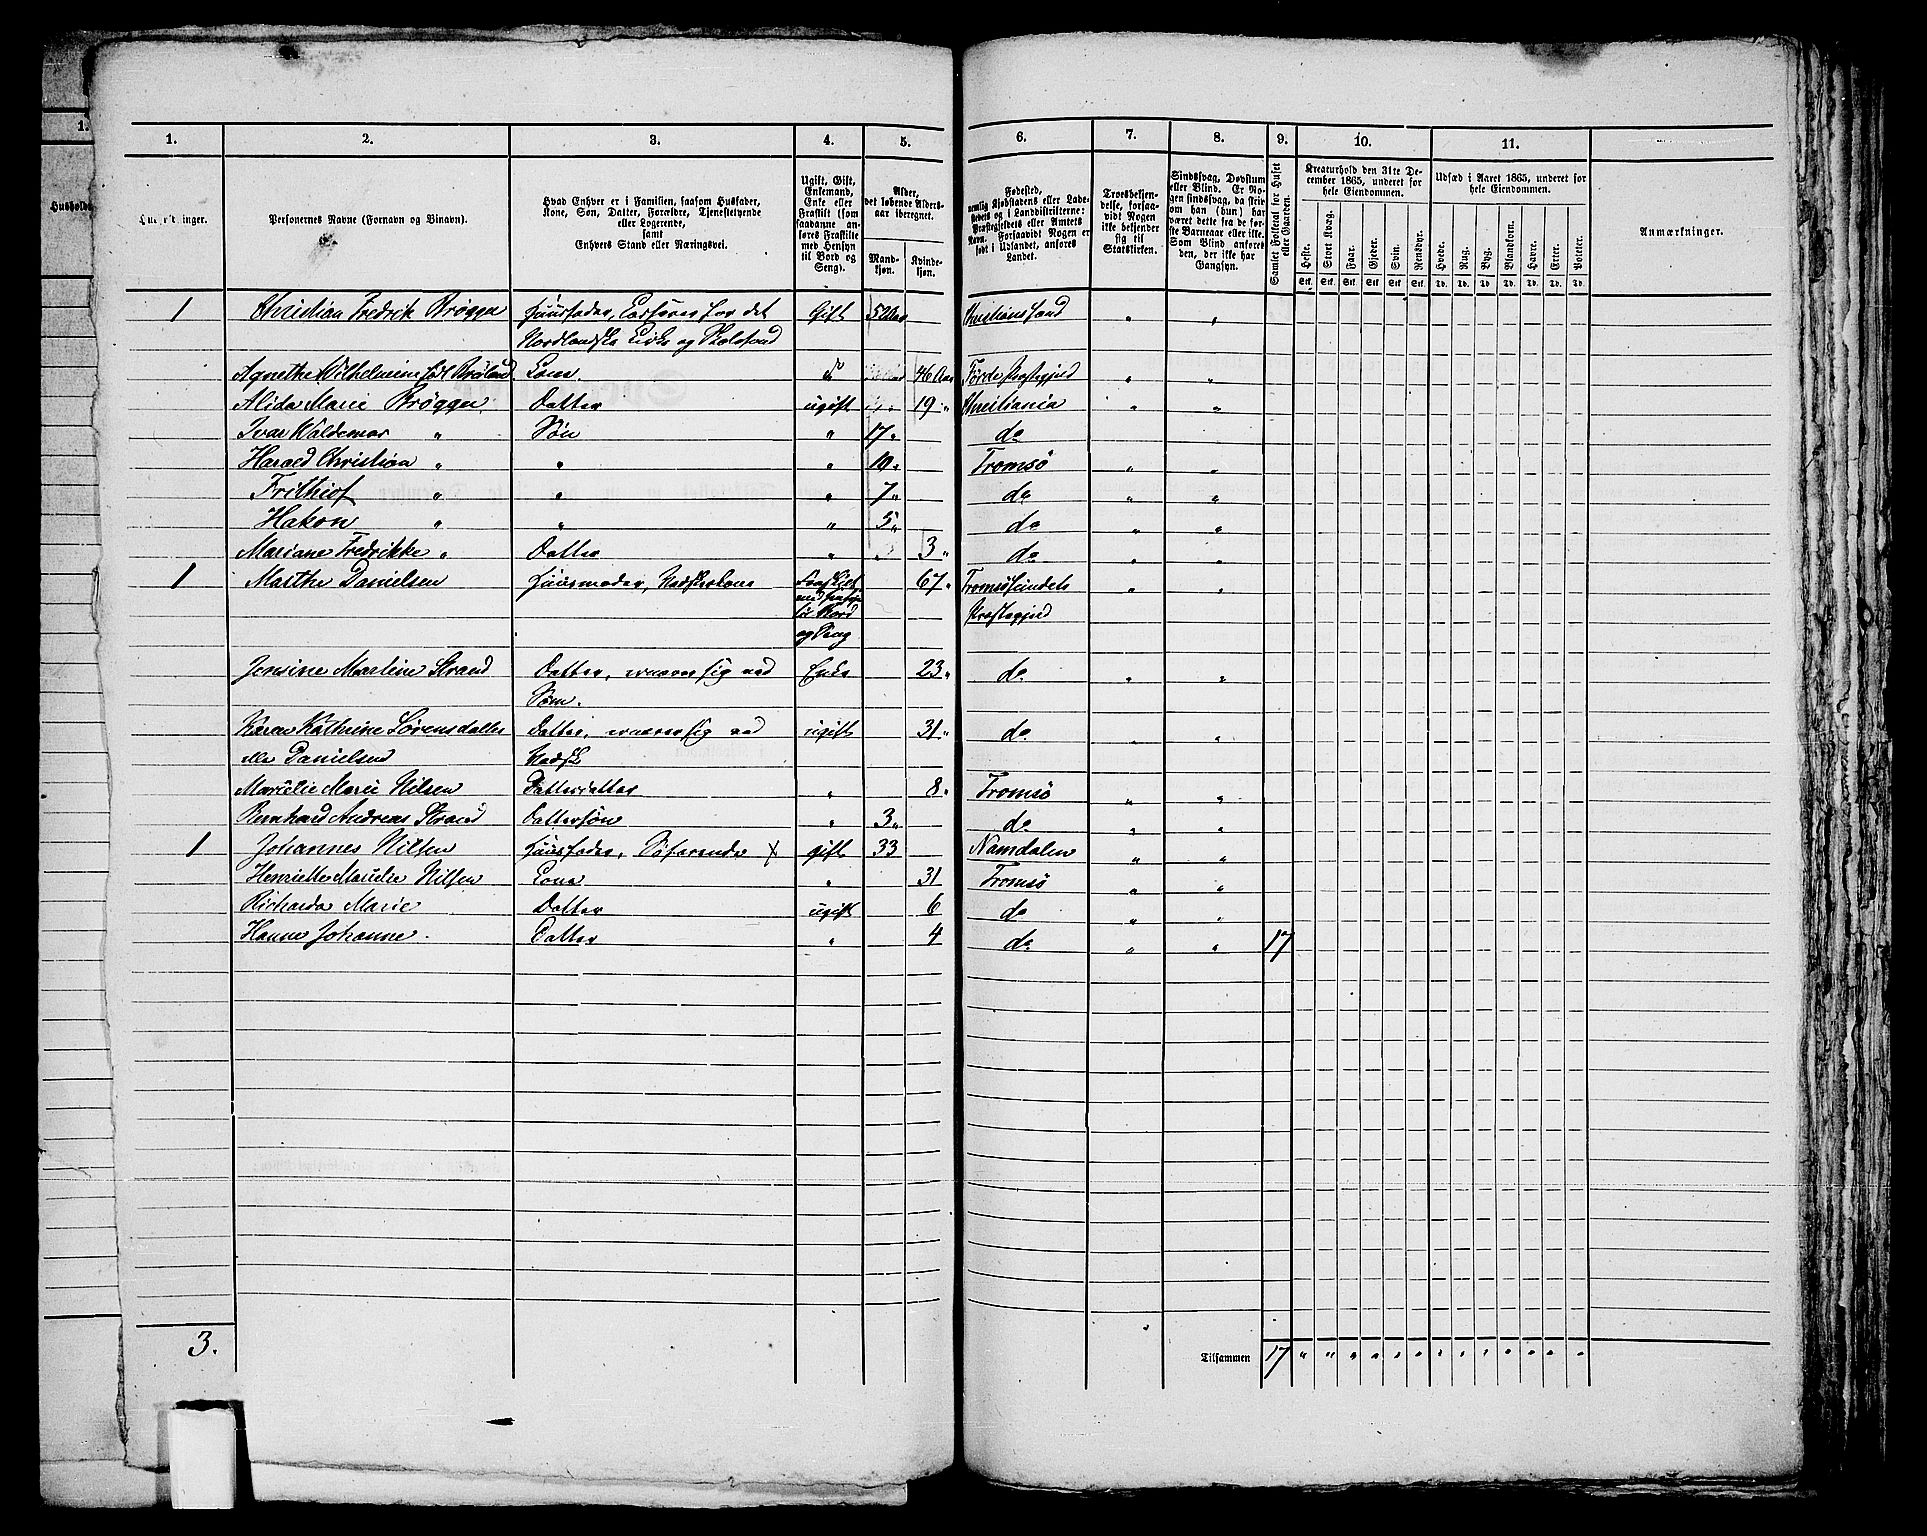 1.
2.
3.
4.
5.
Husholdninger.
Personernes Navne (Fornavn og Binavn).
Hvad Enhver er i Familien, saasom Husfader,
Kone, Søn, Datter, Forældre, Tjenestetyende
eller Logerende,
samt
Enhvers Stand eller Næringsvei.
Ugift, Gift,
Enkemand,
Enke eller
Fraskilt (som
saadanne an-
føres Fraskilte
med Hensyn
til Bord og
Seng).
Alder,
det løbende Alders-
aar iberegnet.
Mand-
kjøn.
Kvinde-
kjøn.
1 Christian Fredrik Brøgger Huusfader, Casserer for det Gift 52 Aar
Nordlandske Kirke og Skolefond
Agnethe Wilhelmine Kone. do 46 Aar
Alida Marie Brøgger Datter ugift 19 "
Ivar Waldemar " Søn " 17 "
Harald Christian " " " 10 "
Frithiof " " " 7 "
Hakon " " " 5 "
Mariane Fredrikke " Datter " 3 "
1 Marthe Danielsen Huusmoder, Vadskekone Fraskilt 67 "
med Hensyn
til Bord
og Seng
Jensine Martine Strand Datter, ernærer sig ved Enke 23 "
Søm.
Karen Kathrine Sørensdatter Datter, ernærer sig ved ugift 31 "
eller Danielsen Vadsk
Marcelie Marie Nilsen Datterdatter " 8 "
Bernhard Andreas Strand Dattersøn " 3 "
1 Johannes Nilsen Huusfader, Søfarende X gift 33
Henriette Nilsen Kone " 31
Richarda Marie Datter ugift 6
Hanne Johanne. Datter " 4
3.
6.
7.
8.
9.
10.
11.
Fødested,
nemlig Kjøbstadens eller Lade-
stedets og i Landdistrikterne:
Præstegjeldets eller Amtets
Navn. Forsaavidt Nogen er
født i Udlandet, anføres
Landet.
Troesbekjen-
delse, forsaa-
vidt Nogen
ikke bekjender
sig til
Statskirken.
Sindssvag, Døvstum
eller Blind. Er No-
gen sindssvag, da skriv
om han (hun) har
været dette fra de før-
ste Barneaar eller ikke.
Som Blind anføres
den, der ikke har
Gangsyn.
Samlet Folketal for Huset
eller Gaarden.
Kreaturhold den 31te De-
cember 1865, underet for
hele Eiendommen.
Heste. Stort Kvæg. Faar. Gjeder. Svin. Rensdyr.
Stk. Stk. Stk. Stk. Stk. Stk.
Udsæd i Aaret 1865, underet for
hele Eiendommen.
Hvede. Rug. Byg. Blandkorn. Havre. Erter. Poteter.
Td. Td. Td. Td. Td. Td. Td.
Anmærkninger.
Christianssand " "
Førde Præstegjeld " "
Christiania " "
do
Tromsø " "
do " "
do " "
do " "
Tromsøsundets " "
Præstegjeld
do " "
do " "
Tromsø " "
do " "
Namdalen " "
Tromsø " "
do " "
do " " 17
Tilsammen 17 " " " " " " " " " " " " "